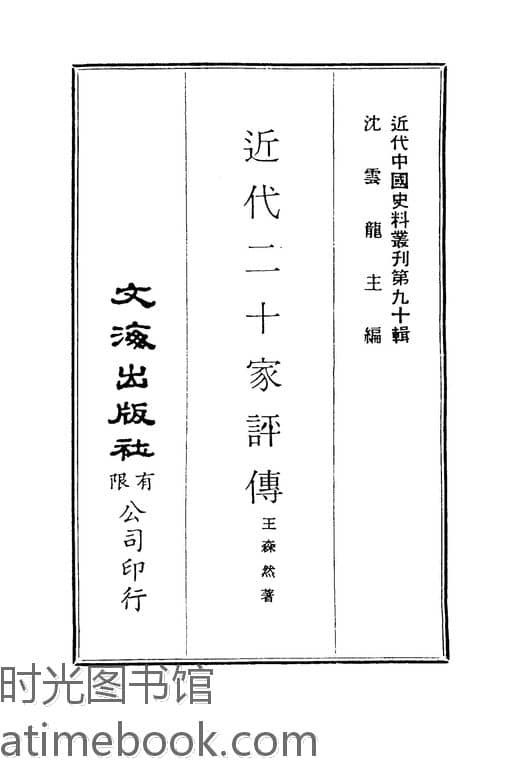 近代中國史料叢刊第九十輯
沈雲龍主編
近代二十家評傳
王森然著
文海出版社
有限
公司印行
时光图书馆
atimebook.com